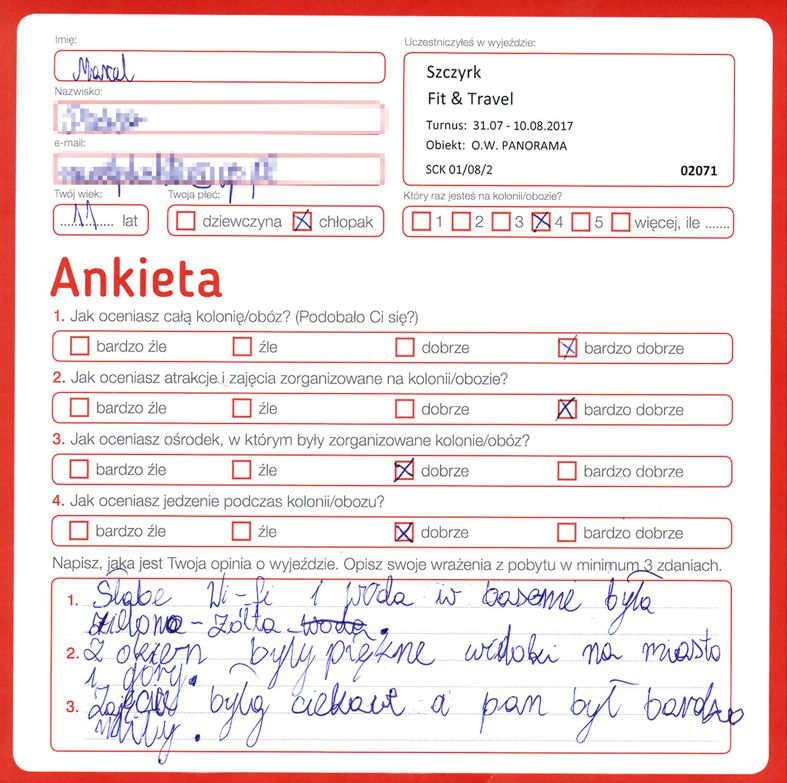 Imię:
Marcel
Nazwisko:
e-mail:
Twój wiek:
11 lat
Twoja płeć:
dziewczyna chłopak
Uczestniczyłeś w wyjeździe:
Szczyrk
Fit & Travel
Turnus: 31.07 - 10.08.2017
Obiekt: O.W. PANORAMA
SCK 01/08/2 02071
Który raz jesteś na kolonii/obozie?
1 2 3 4 5 więcej, ile .......
Ankieta
1. Jak oceniasz całą kolonię/obóz? (Podobało Ci się?)
bardzo źle źle dobrze bardzo dobrze
2. Jak oceniasz atrakcje i zajęcia zorganizowane na kolonii/obozie?
bardzo źle źle dobrze bardzo dobrze
3. Jak oceniasz ośrodek, w którym były zorganizowane kolonie/obóz?
bardzo źle źle dobrze bardzo dobrze
4. Jak oceniasz jedzenie podczas kolonii/obozu?
bardzo źle źle dobrze bardzo dobrze
Napisz, jaka jest Twoja opinia o wyjeździe. Opisz swoje wrażenia z pobytu w minimum 3 zdaniach.
1. Słabe Wi-fi i woda w basenie była
zielono - żółta woda.
2. Z okien były piękne widoki na miasto
i góry.
3. Zajęcia były ciekawe a pan był bardzo
miły.